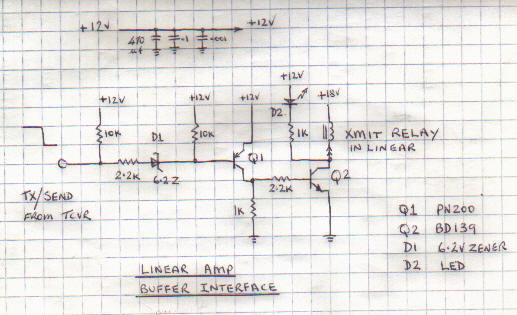 +12V
+12V
470
uf
.1
.001
+12V
+12V
+12V
+12V
+18V
D2
10K
D1
10K
Q1
1K
XMIT RELAY
IN LINEAR
2.2K
6.2Z
Q2
TX/SEND
FROM TCVR
1K
2.2K
Q1 PN200
Q2 BD139
D1 6.2V ZENER
D2 LED
LINEAR AMP
BUFFER INTERFACE